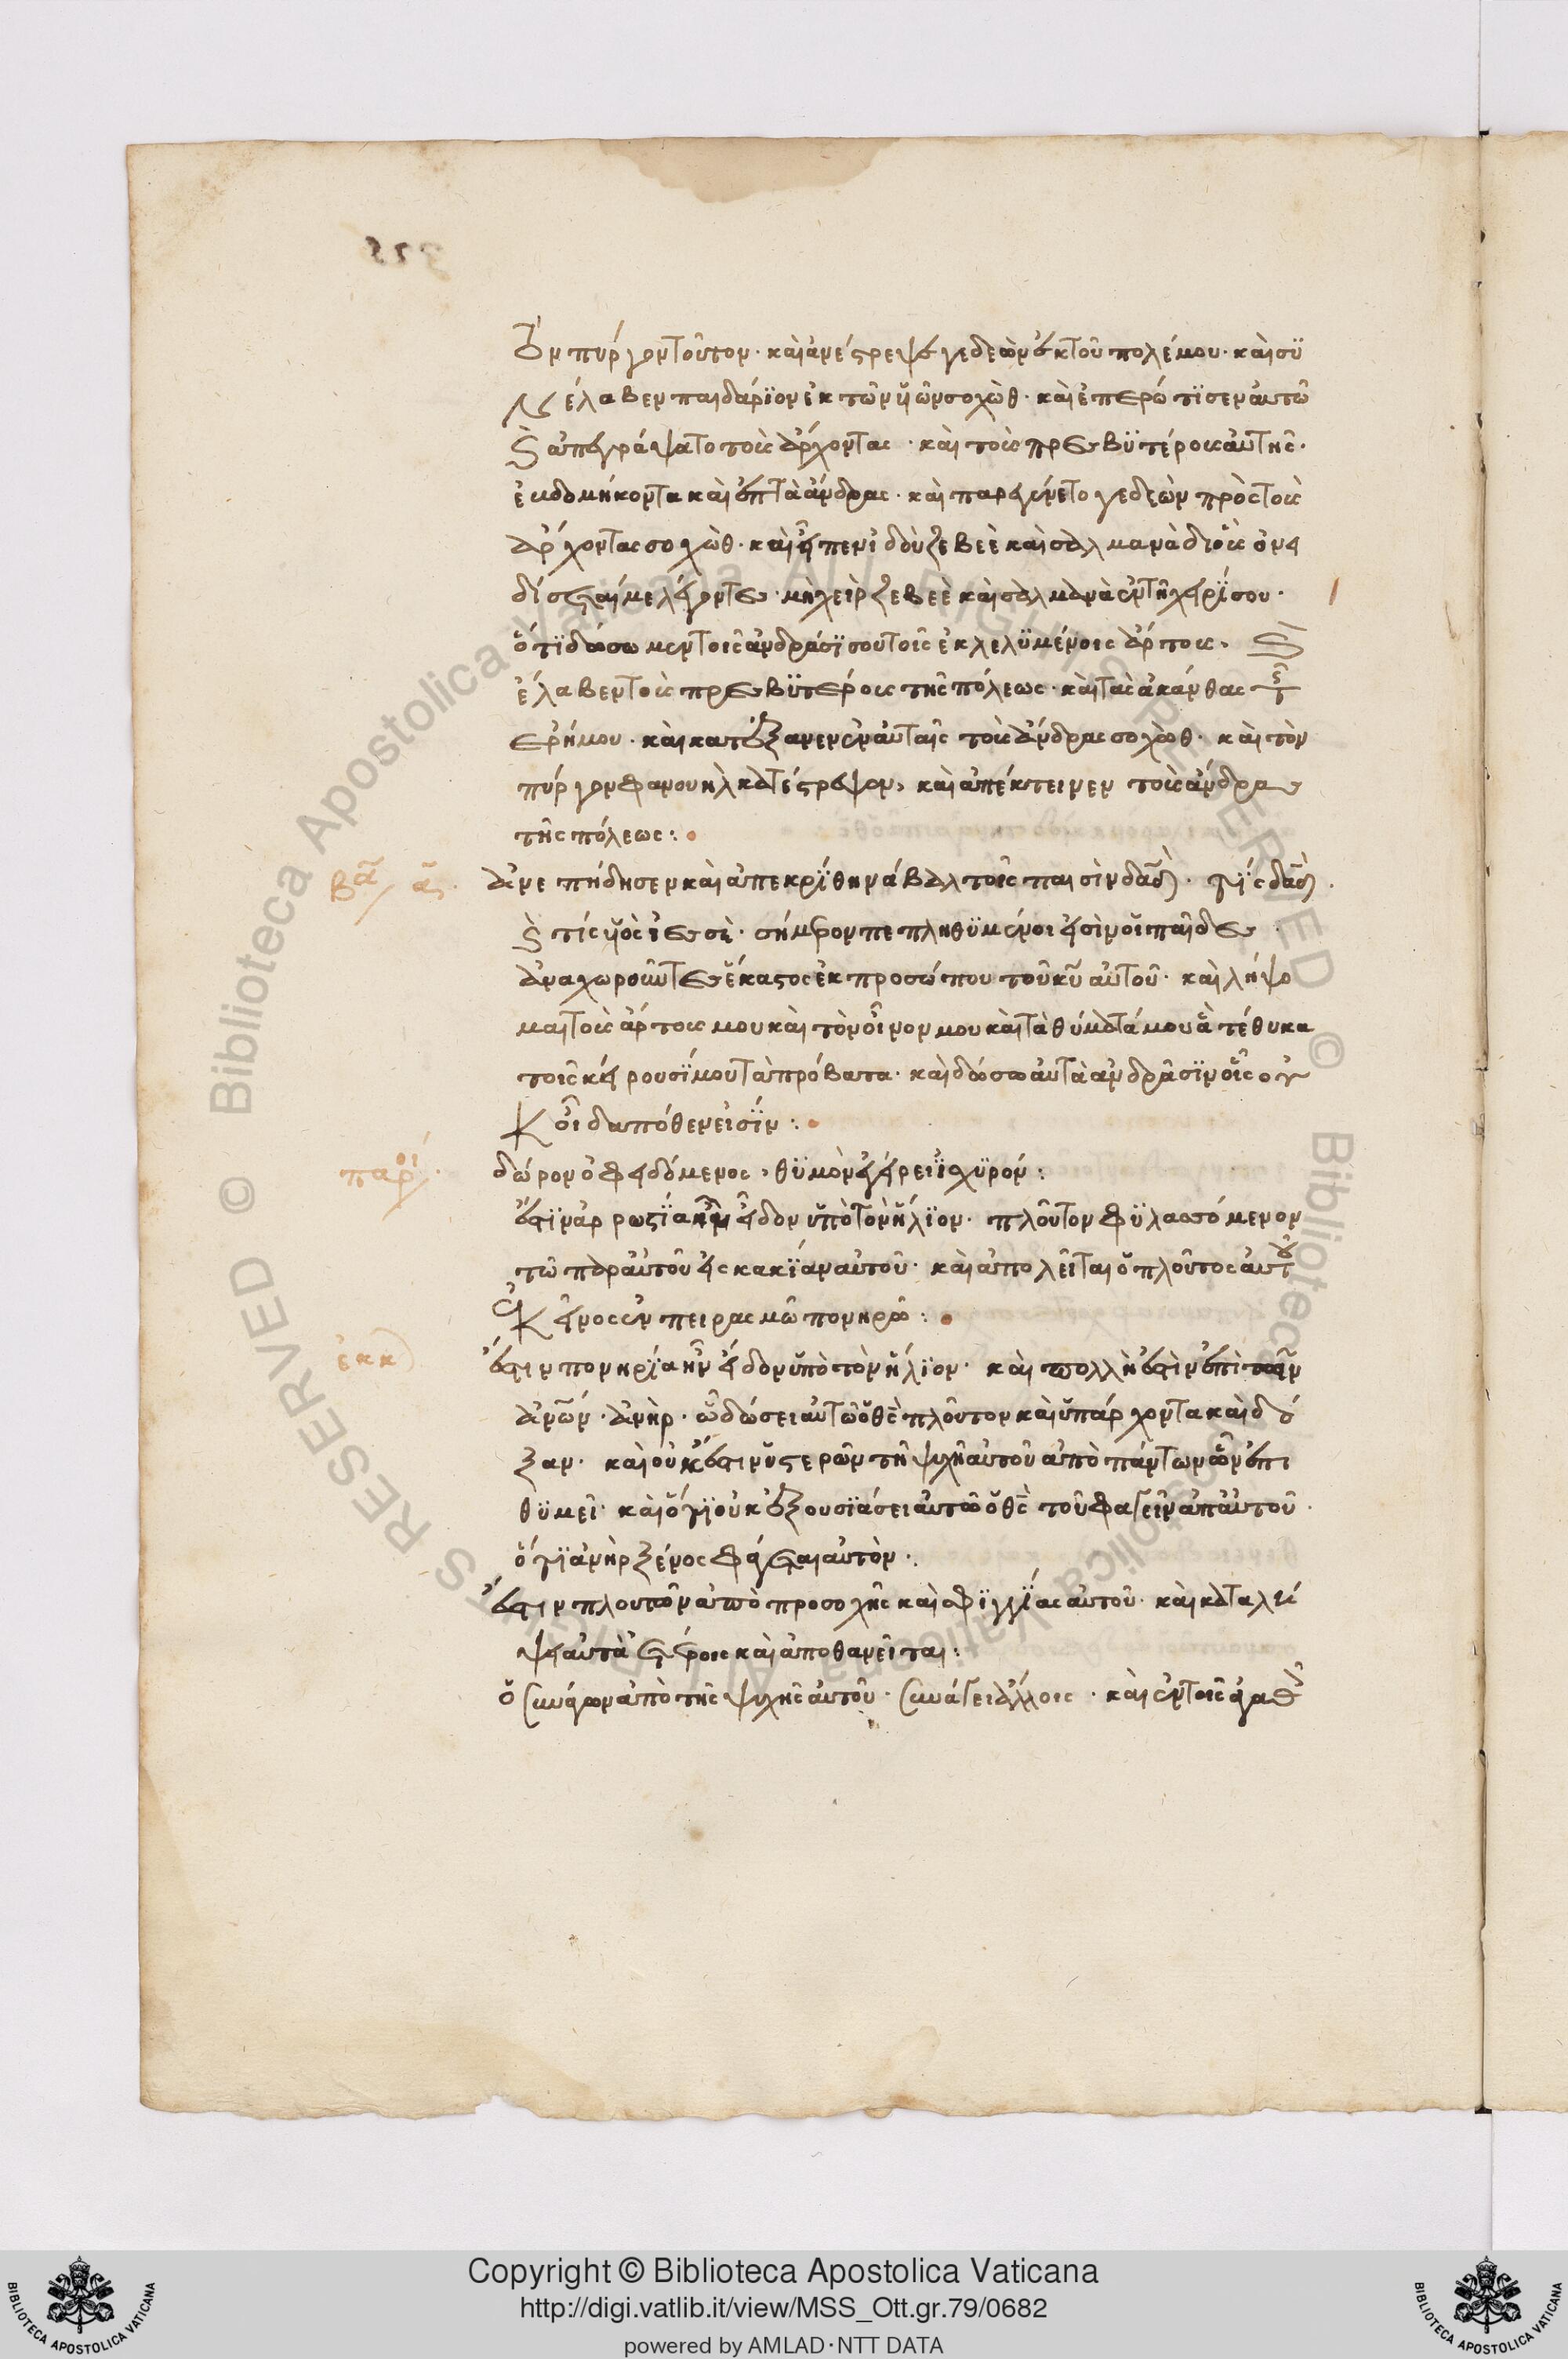 τὸν πύργον τοῦτον· καὶ ἀνέστρεψε γεδεὼν ἐκ τοῦ πολέμου· καὶ συ
νέλαβεν παιδάρϊον ἐκ τῶν ϋἱῶν σοχὼθ· καὶ ἐπερώτϊσεν αὐτῶ
καὶ ἀπεγράψατο τοὺς ἄρχοντας· καὶ τοὺς πρεσβϋτέρους αὐτῆς·
ἑβδομήκοντα καὶ ἑπτὰ ἄνδρας· καὶ παρεγένετο γεδεὼν πρὸς τοὺς
ἄρχοντας σοχὼθ· καὶ εἶπεν ἰδοὺ ζεβεὲ καὶ σαλμανὰ δι οὓς ὀνει
δίσεταί με λέγοντες· μὴ χεὶρ ζεβεὲ καὶ σαλμανὰ ἐν τῇ χειρΐ σου·
ὅτϊ δώσωμεν τοῖς ἀνδράσΐ σου τοῖς ἐκλελϋμένοις ἄρτους· καὶ
ἔλαβεν τοὺς πρεσβϋτέρους τῆς πόλεως· καὶ τὰς ἀκάνθας τῆς
ἐρήμου· καὶ κατέξανεν ἐν αὐταῖς τοὺς ἄνδρας σοχὼθ· καὶ τὸν
πύργον φανουὴλ κατέστρεψεν, καὶ ἀπέκτεινεν τοὺς ἄνδρας
τῆς πόλεως:
βᾶ ᾶ. ἀνεπήδησεν καὶ ἀπεκρΐθη νάβαλ τοῖς παισὶν δᾶδ· τίς δᾶδ.
καὶ τίς ὑὸς ἰεσσαὶ· σήμερον πεπληθϋμένοι εἰσὶν οἱ παῖδες
ἀναχωροῦντες ἕκαστος ἐκ προσώπου τοῦ κῦ αὐτοῦ· καὶ λήψο
μαι τοὺς ἄρτους μου καὶ τὸν οἶνον μου καὶ τὰ θύματά μου ἃ τέθυκα
τοῖς κείρουσΐ μου τὰ πρόβατα· καὶ δώσω αὐτὰ ἀνδράσϊν οἷς οὐ
κ οἶδα πόθεν εἰσΐν:
παροι. δώρον ὁ φειδόμενος, θϋμὸν ἐγείρει ἰσχϋρόν:
ἔστϊν ἀρρωστΐα ἣν εἶδον ὑπὸ τὸν ἥλϊον· πλοῦτον φϋλασσόμενον
τῶ παρ αὐτοῦ εἰς κακΐαν αὐτοῦ· καὶ ἀπολεῖται ὁ πλοῦτος αὐτοῦ
ἐκεῖνος ἐν πειρασμῶ πονηρῶ:
ἐκκ ἔστιν πονηρΐα ἣν εἶδον ὑπὸ τὸν ἥλϊον· καὶ πολλὴ ἐστὶν ἐπὶ τὸν
ἀν͂ον· ἀνὴρ· ὧ δώσει αὐτῶ ὁ θς πλοῦτον καὶ ὑπάρχοντα καὶ δό
ξαν· καὶ οὐκ ἔστιν ὑστερῶν τῆ ψυχῆ αὐτοῦ ἀπὸ πάντων ὧν ἐπι
θϋμεῖ· καὶ ὅτϊ οὐκ ἐξουσϊάσει αὐτῶ ὁ θς τοῦ φαγεῖν ἀπ αὐτοῦ.
ὅτϊ ἀνὴρ ξένος φάγεται αὐτὸν.
ἔστιν πλουτῶν ἀπὸ προσοχῆς καὶ σφϊγγΐας αὐτοῦ· καὶ καταλεί
ψει αὐτὰ ἑτέροις καὶ ἀποθανεῖται:
ὁ συνάγων ἀπὸ τῆς ψυχῆς αὐτοῦ· συνάγει ἄλλοις· καὶ ἐν τοῖς ἀγαθοῖς
Copyright © Biblioteca Apostolica Vaticana
http://digi.vatlib.it/view/MSS_Ott.gr.79/0682
powered by AMLAD·NTT DATA